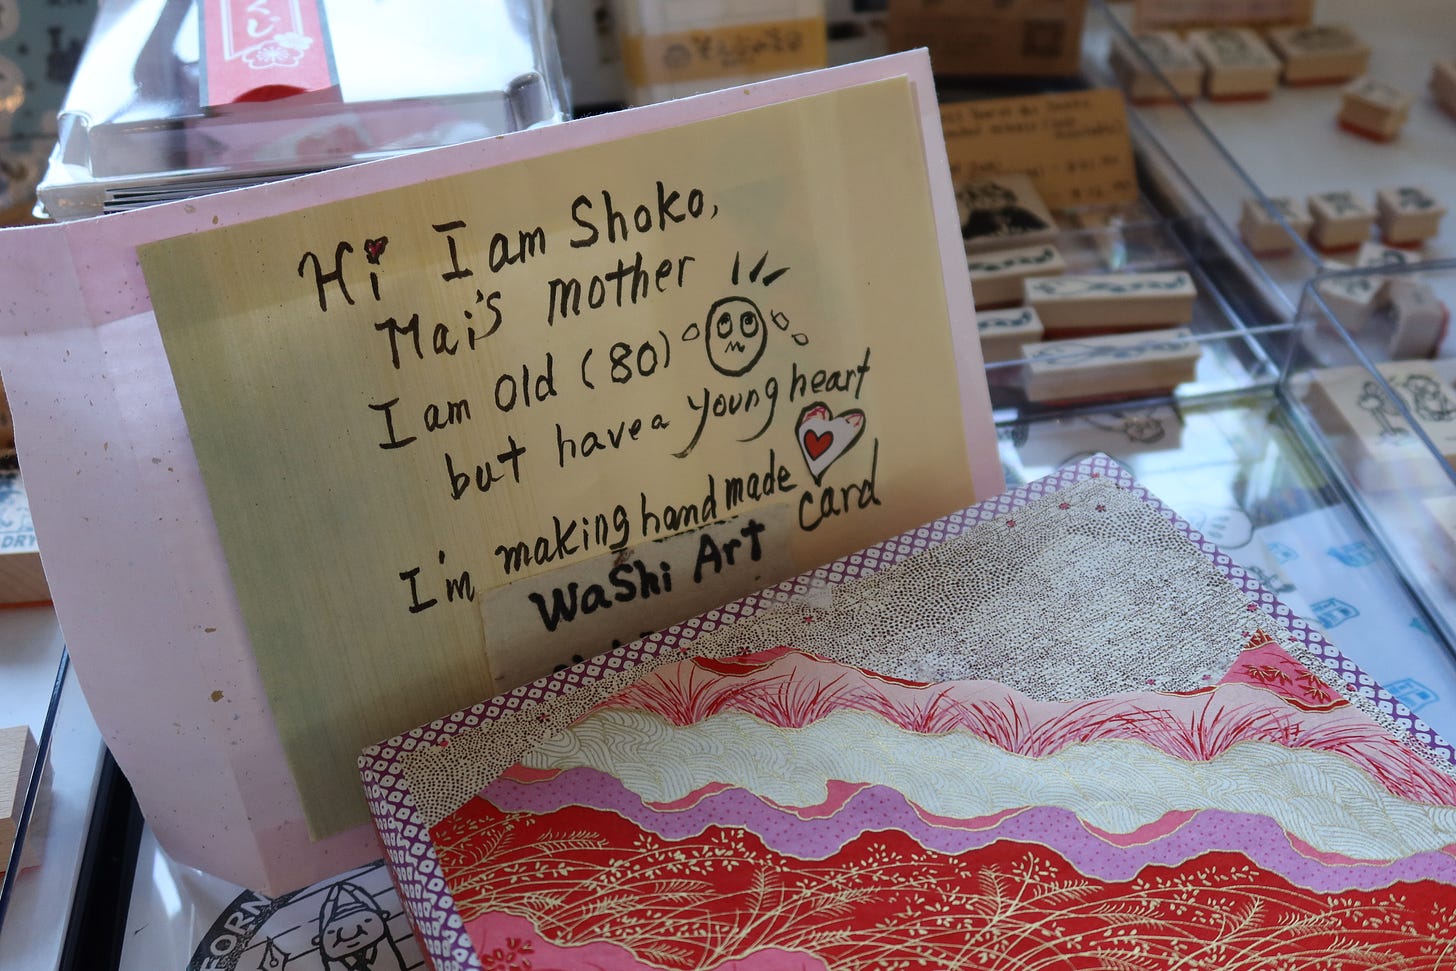 Hi I am Shoko,
Mai's mother
I am old (80)
but have a young heart
I'm making handmade card
WaShi Art
FORN
DRY